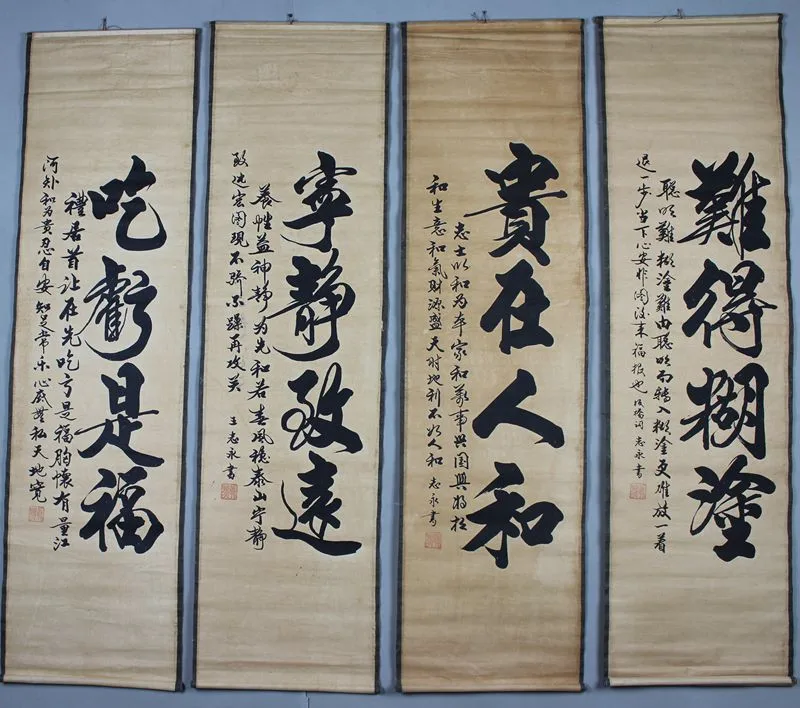 難得糊塗
聪明難糊塗難由聪明而轉入糊塗更难放一着
退一步当下心安非图後来福报也 板橋词 志永書
貴在人和
志士以和为本家和萬事興國興将相
和生意和氣財源盛天时地利不如人和 志永書
寧靜致遠
養性益神静为先和若春風稳泰山宁静
致远宏图現不骄不躁再攻关 王志永書
吃虧是福
禮居首让在先吃亏是福胸懷有量江
河外和为貴忍自安知足常乐心底無私天地宽